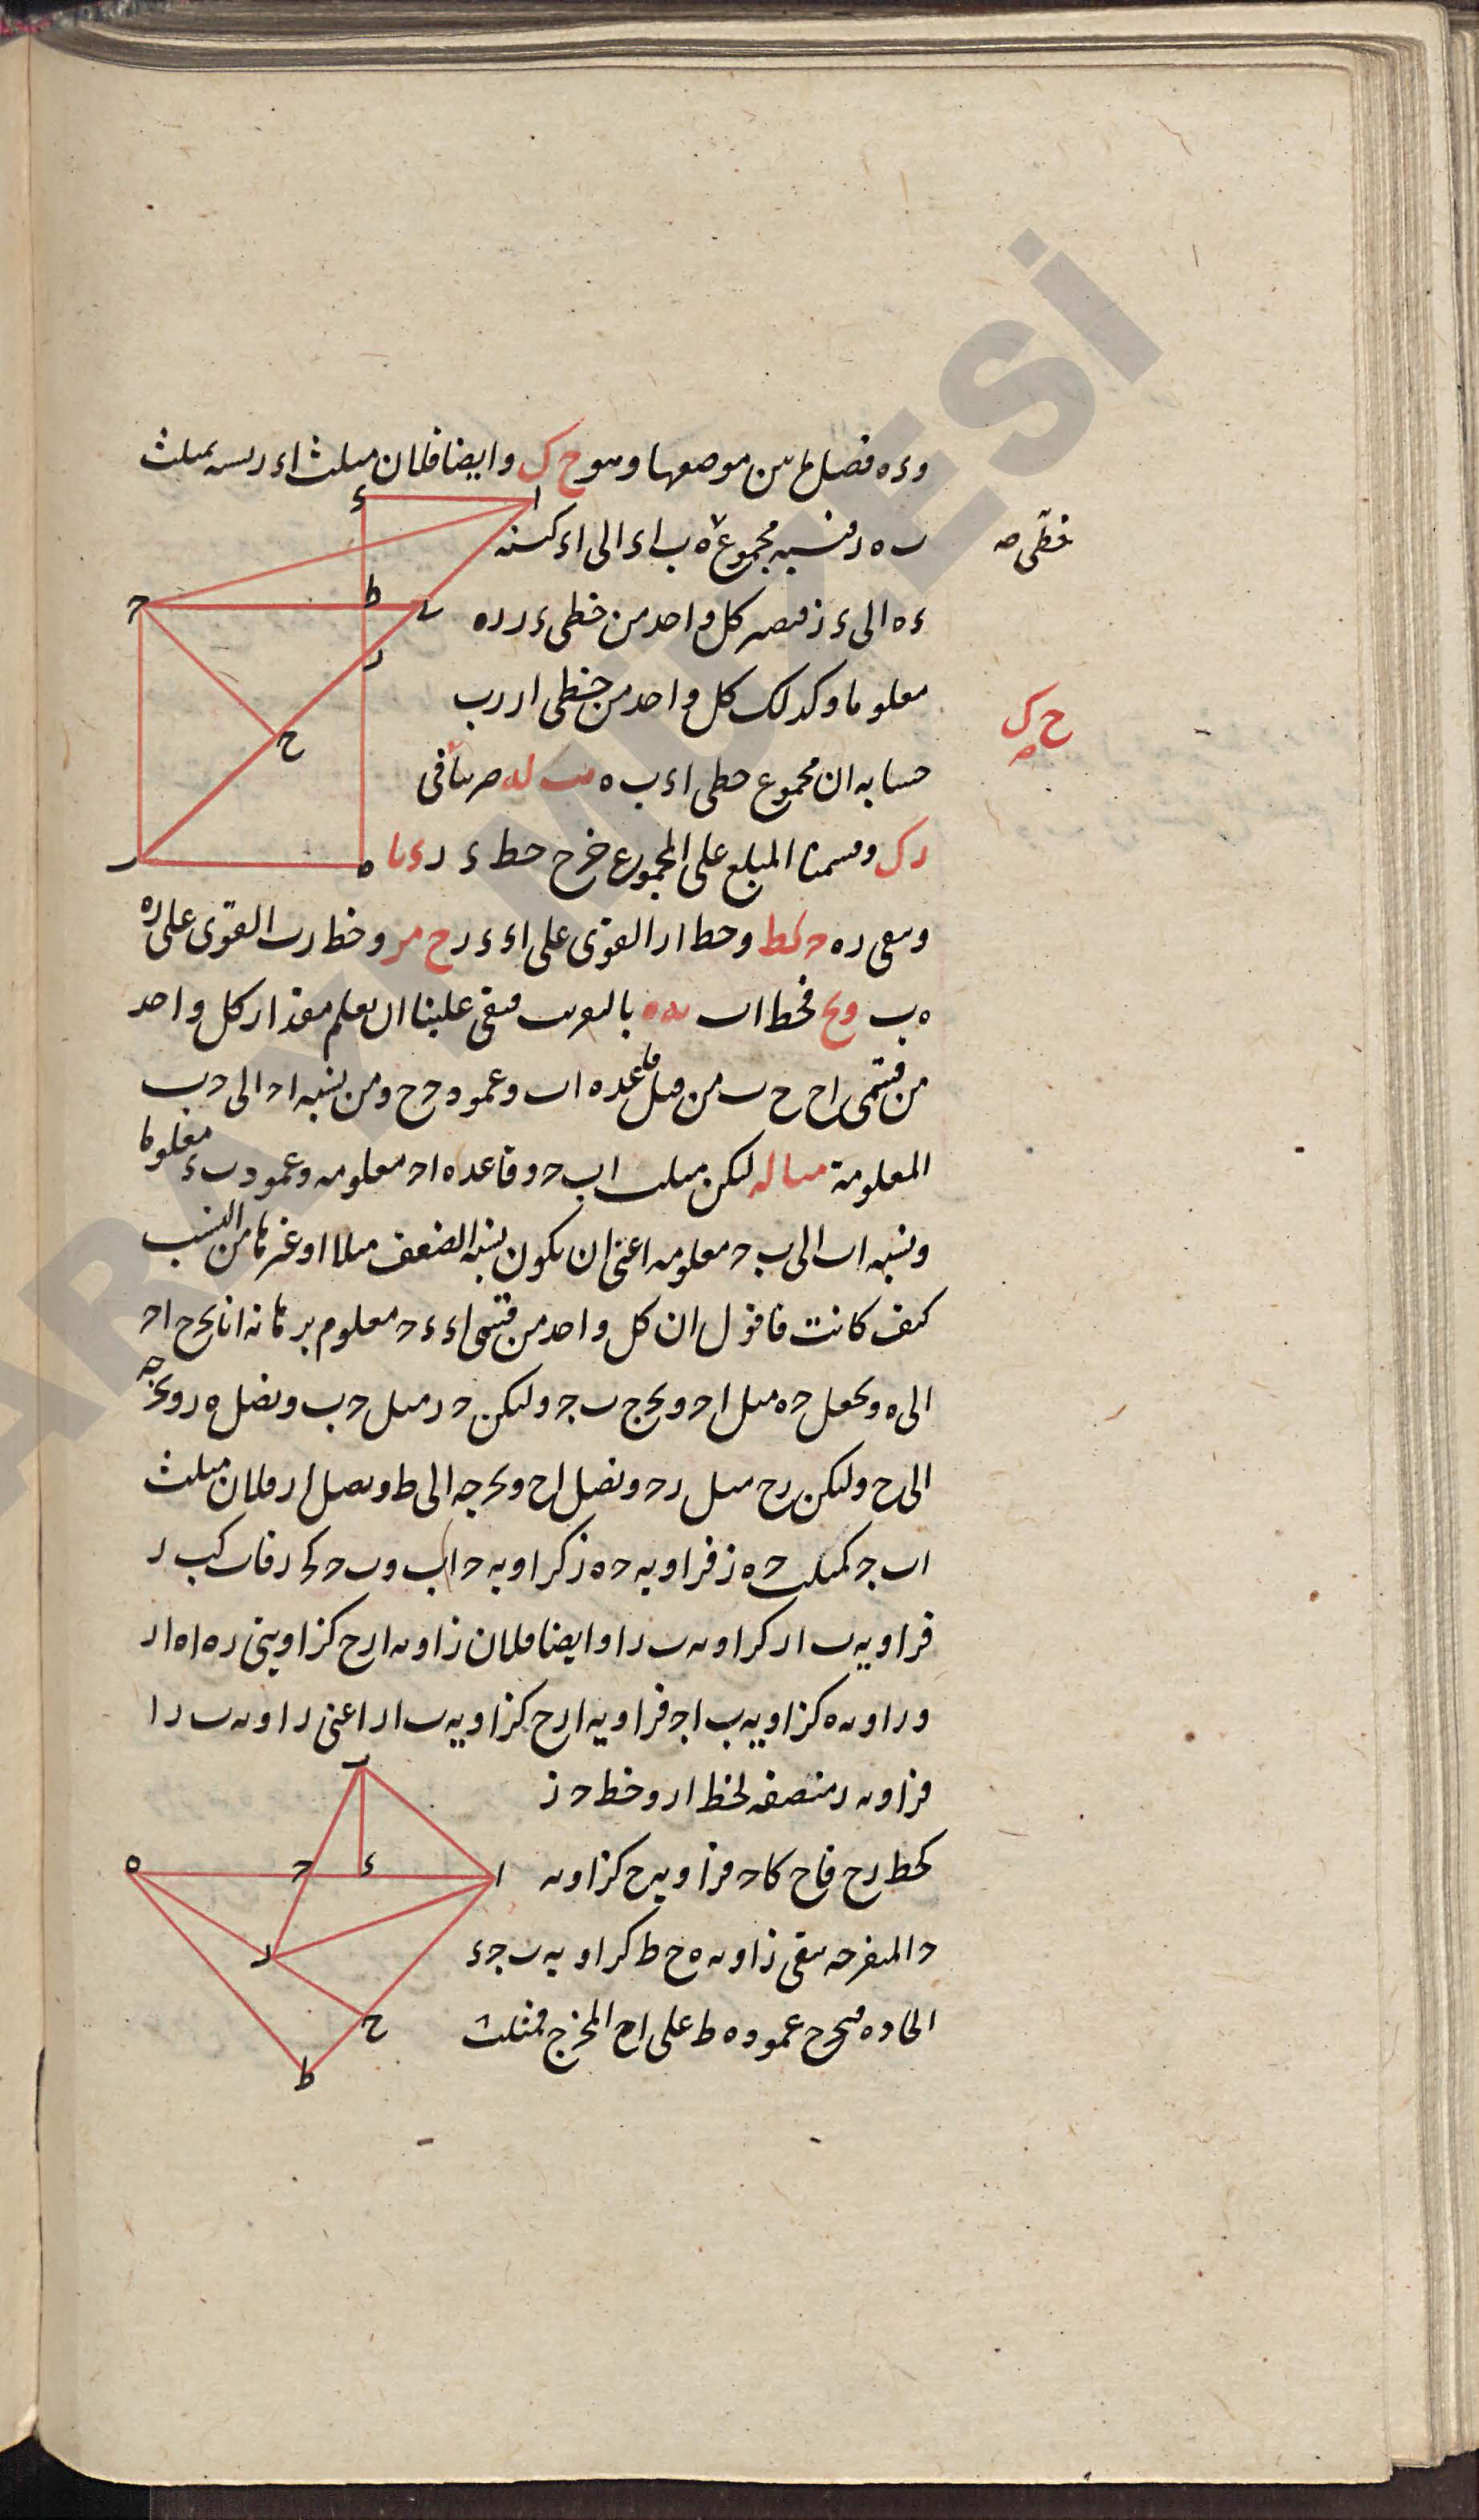 وءه فصل ما بين موضعها وهو ح ك وايضا فلان مثلث اءر يشبه بمثلث
ب ه ر فنسبه مجموع ه ب اء الى اء كنسبة
خطى صه
ءه الى ءز فيصير كل واحد من خطى ءر ره
معلوما وكذلك كل واحد من خطى ار رب
ح ك
حسابه ان مجموع خطى اء ب ه له ضربنا فى
ر ك وقسمنا المبلغ على المجموع خرج خط ء ر
وبقى ره ح لط وخط ار القوى على اء ءر ح مر وخط رب القوى على ره
ه ب فخط اب بالتقريب فبقى علينا ان نعلم مقدار كل واحد
من قسمى اح ح ب من قبل قاعده اب وعمود ح ح ومن نسبه اح الى ح ب
المعلومة مثاله ليكن مثلث اب ح وقاعده اح معلومه وعمود ب ء معلوما
ونسبه اب الى ب ح معلومه اعنى ان يكون نسبة الضعف مثلا او غيرها من النسب
كيف كانت فاقول ان كل واحد من قسمى اء ء ح معلوم برهانه انا نخرج اح
الى ه ونجعل ح ه مثل اح ونخرج ب ح وليكن ح ر مثل ح ب ونصل ه ر ونخرجه
الى ح وليكن رح مثل رح ونصل اح ونخرجه الى ط ونصل ار فلان مثلث
اب ح كمثلث ح ه ز فزاويه ح ه ز كزاويه ح اب وب ح كح ر فاب كب ر
فزاويه ب ار كزاويه ب را وايضا فلان زاويه ارح كزاويتى ره اه ار
وزاويه ه كزاويه ب اح فزاويه ارح كزاويه ب ار اعنى زاويه ب را
فزاويه ر منصفه لخط ار وخط ح ز
كخط رح فاح كاح فزاويه ح كزاويه
ح المنفرجه تبقى زاويه ه ح ط كزاويه ب ح ء
الحاده فيخرج عمود ه ط على اح المخرج فمثلث